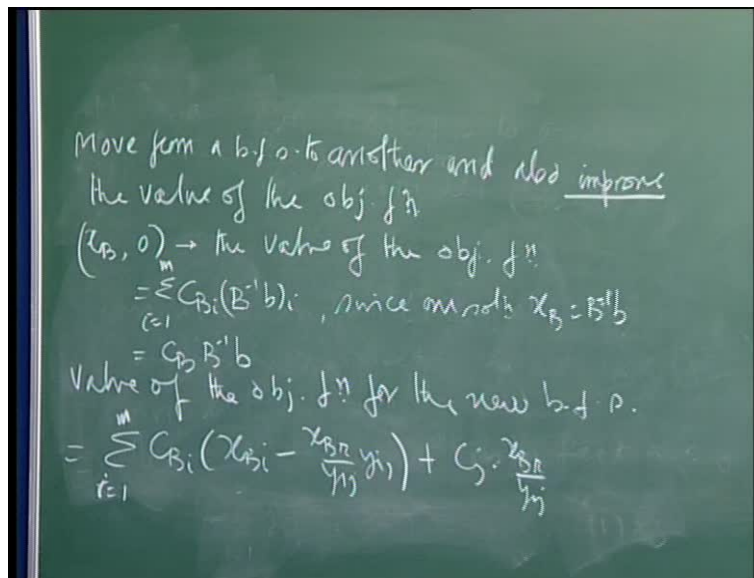 Move from a b.f.s. to another and also improve
the value of the obj. fn
(x_B, 0) → the value of the obj. fn
= Σ_{i=1}^{m} C_{Bi} (B⁻¹b)_i , since our soln x_B = B⁻¹b
= C_B B⁻¹b
Value of the obj. fn for the new b.f.s.
= Σ_{i=1}^{m} C_{Bi} (x_{Bi} - x_{Br}/y_{rj} y_{ij}) + C_j · x_{Br}/y_{rj}